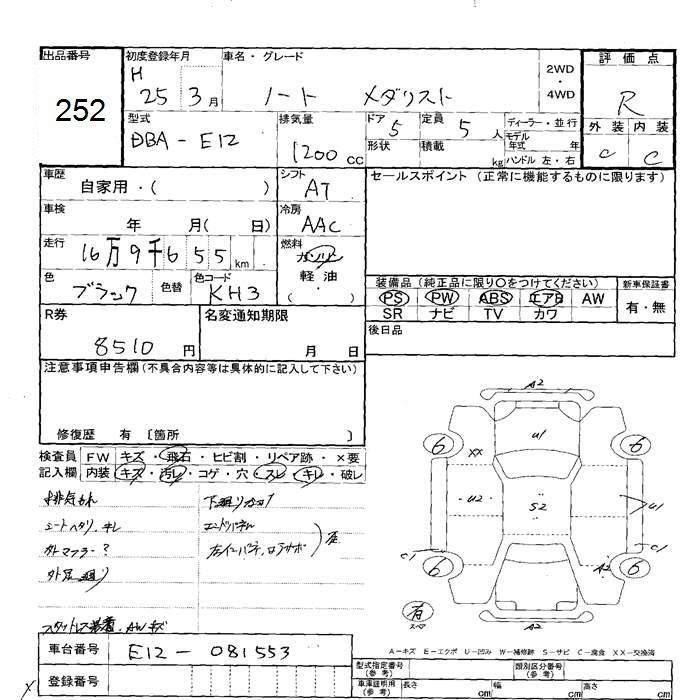 出品番号
252
初度登録年月
H 25 3月
車名・グレード
ノート メダリスト
2WD
・
4WD
評価点
R
外装 内装
C C
型式
DBA-E12
排気量
1200 CC
ドア 5
定員 5人
形状
積載 kg
ディーラー・並行
モデル年式 年
ハンドル 左・右
車歴
自家用・( )
シフト
AT
セールスポイント (正常に機能するものに限ります)
車検
年 月( 日)
冷房
AAC
走行
16万9千655km
燃料
ガソリン
軽油
( ・ )
色
ブラック
色替
色コード
KH3
装備品(純正品に限り〇をつけてください)
新車保証書
PS PW ABS エアB AW
有・無
SR ナビ TV カワ
R券
8510円
名変通知期限
月 日
後日品
注意事項申告欄(不具合内容等は具体的に記入して下さい)
修復歴 有 〔箇所 〕
検査員 FW キズ・飛石・ヒビ割・リペア跡・×要
記入欄 内装 キズ・汚レ・コゲ・穴・スレ・キレ・破レ
排気もれ
シートヘタリ、キレ
外マフラー?
スタットレス装着、AWキズ
エンドパネル
A2
U1
6
6
XX
U2
S2
U1
C1
C1
6
6
A2
有
スペア
A2
A-キズ E-エクボ U-凹み W-補修跡 S-サビ C-腐食 XX-交換済
車台番号
E12-081553
登録番号
型式指定番号(参考)
類別区分番号(参考)
車庫証明用(参考)
長さ cm
幅 cm
高さ cm